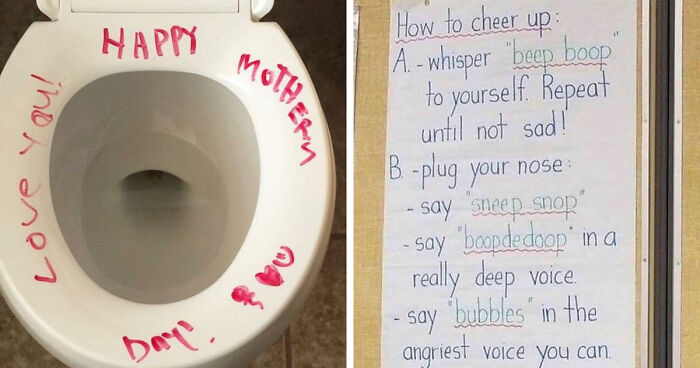 HAPPY
MOTHERS
Day!
Love You!
How to cheer up:
A. - whisper "beep boop"
to yourself. Repeat
until not sad!
B. - plug your nose:
- say "sneep snop"
- say "boopdedoop" in a
really deep voice.
- say "bubbles" in the
angriest voice you can.